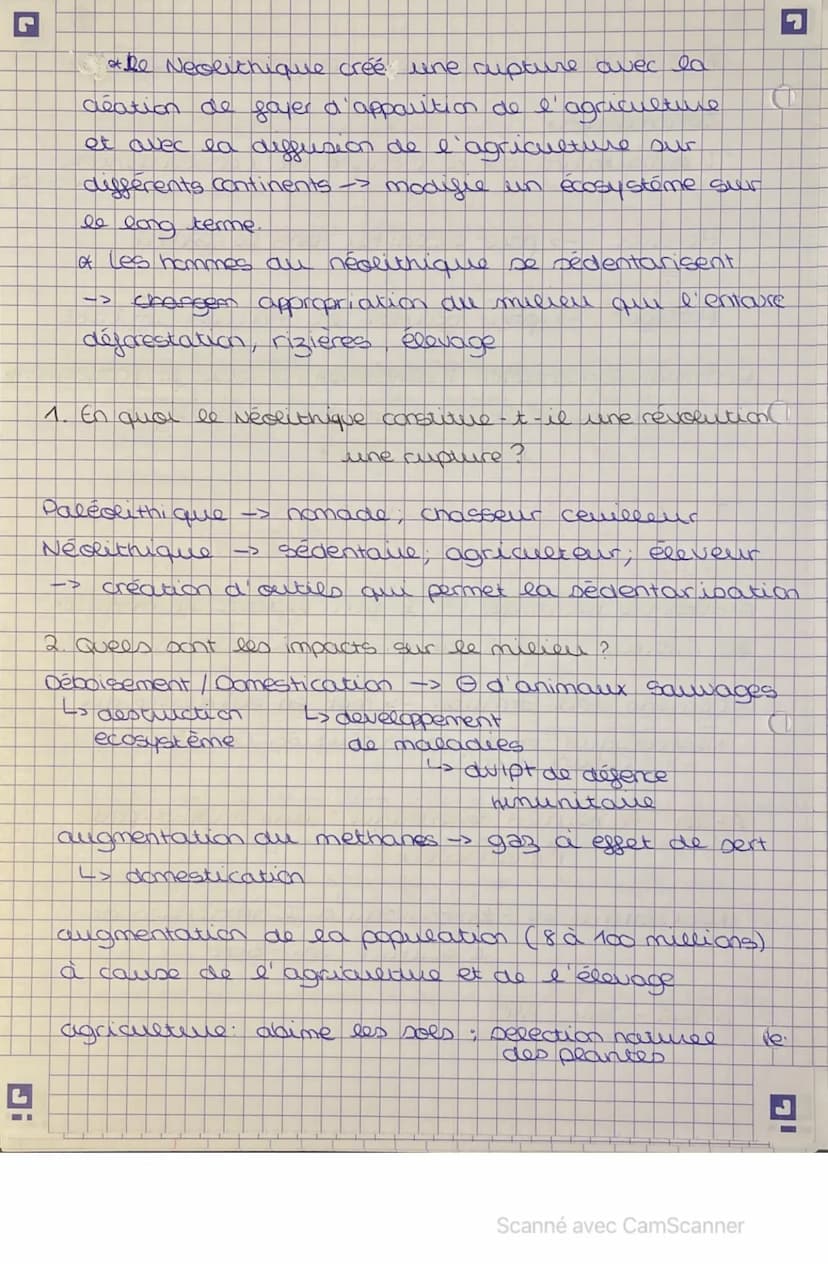 * Le Neolithique créé une rupture avec la
création de foyer d'apparition de l'agriculture
et avec la diffusion de l'agriculture sur
différents continents -> modifie un écosystème sur
le long terme.
* Les hommes au néolithique se sédentarisent
-> changen appropriation du milieu qui l'entoure
déforestation, rizières, élevage
1. En quoi le Néolithique constitue-t-il une révolution
une rupture ?
Paléolithique -> nomade, chasseur cueilleur
Néolithique -> sédentaire, agriculteur, éleveur
-> création d'outils qui permet la sédentarisation
2. Quels sont les impacts sur le milieu ?
Déboisement / Domestication -> ⊖ d'animaux sauvages
↳ destruction ↳ developpement
ecosystème de maladies
↳ dvlpt de défence
immunitaire
augmentation du methanes -> gaz à effet de sert
↳ domestication
augmentation de la population (8 à 100 millions)
à cause de l'agriculture et de l'élevage
agriculture : abime les sols ; selection naturel le
des plantes
Scanné avec CamScanner